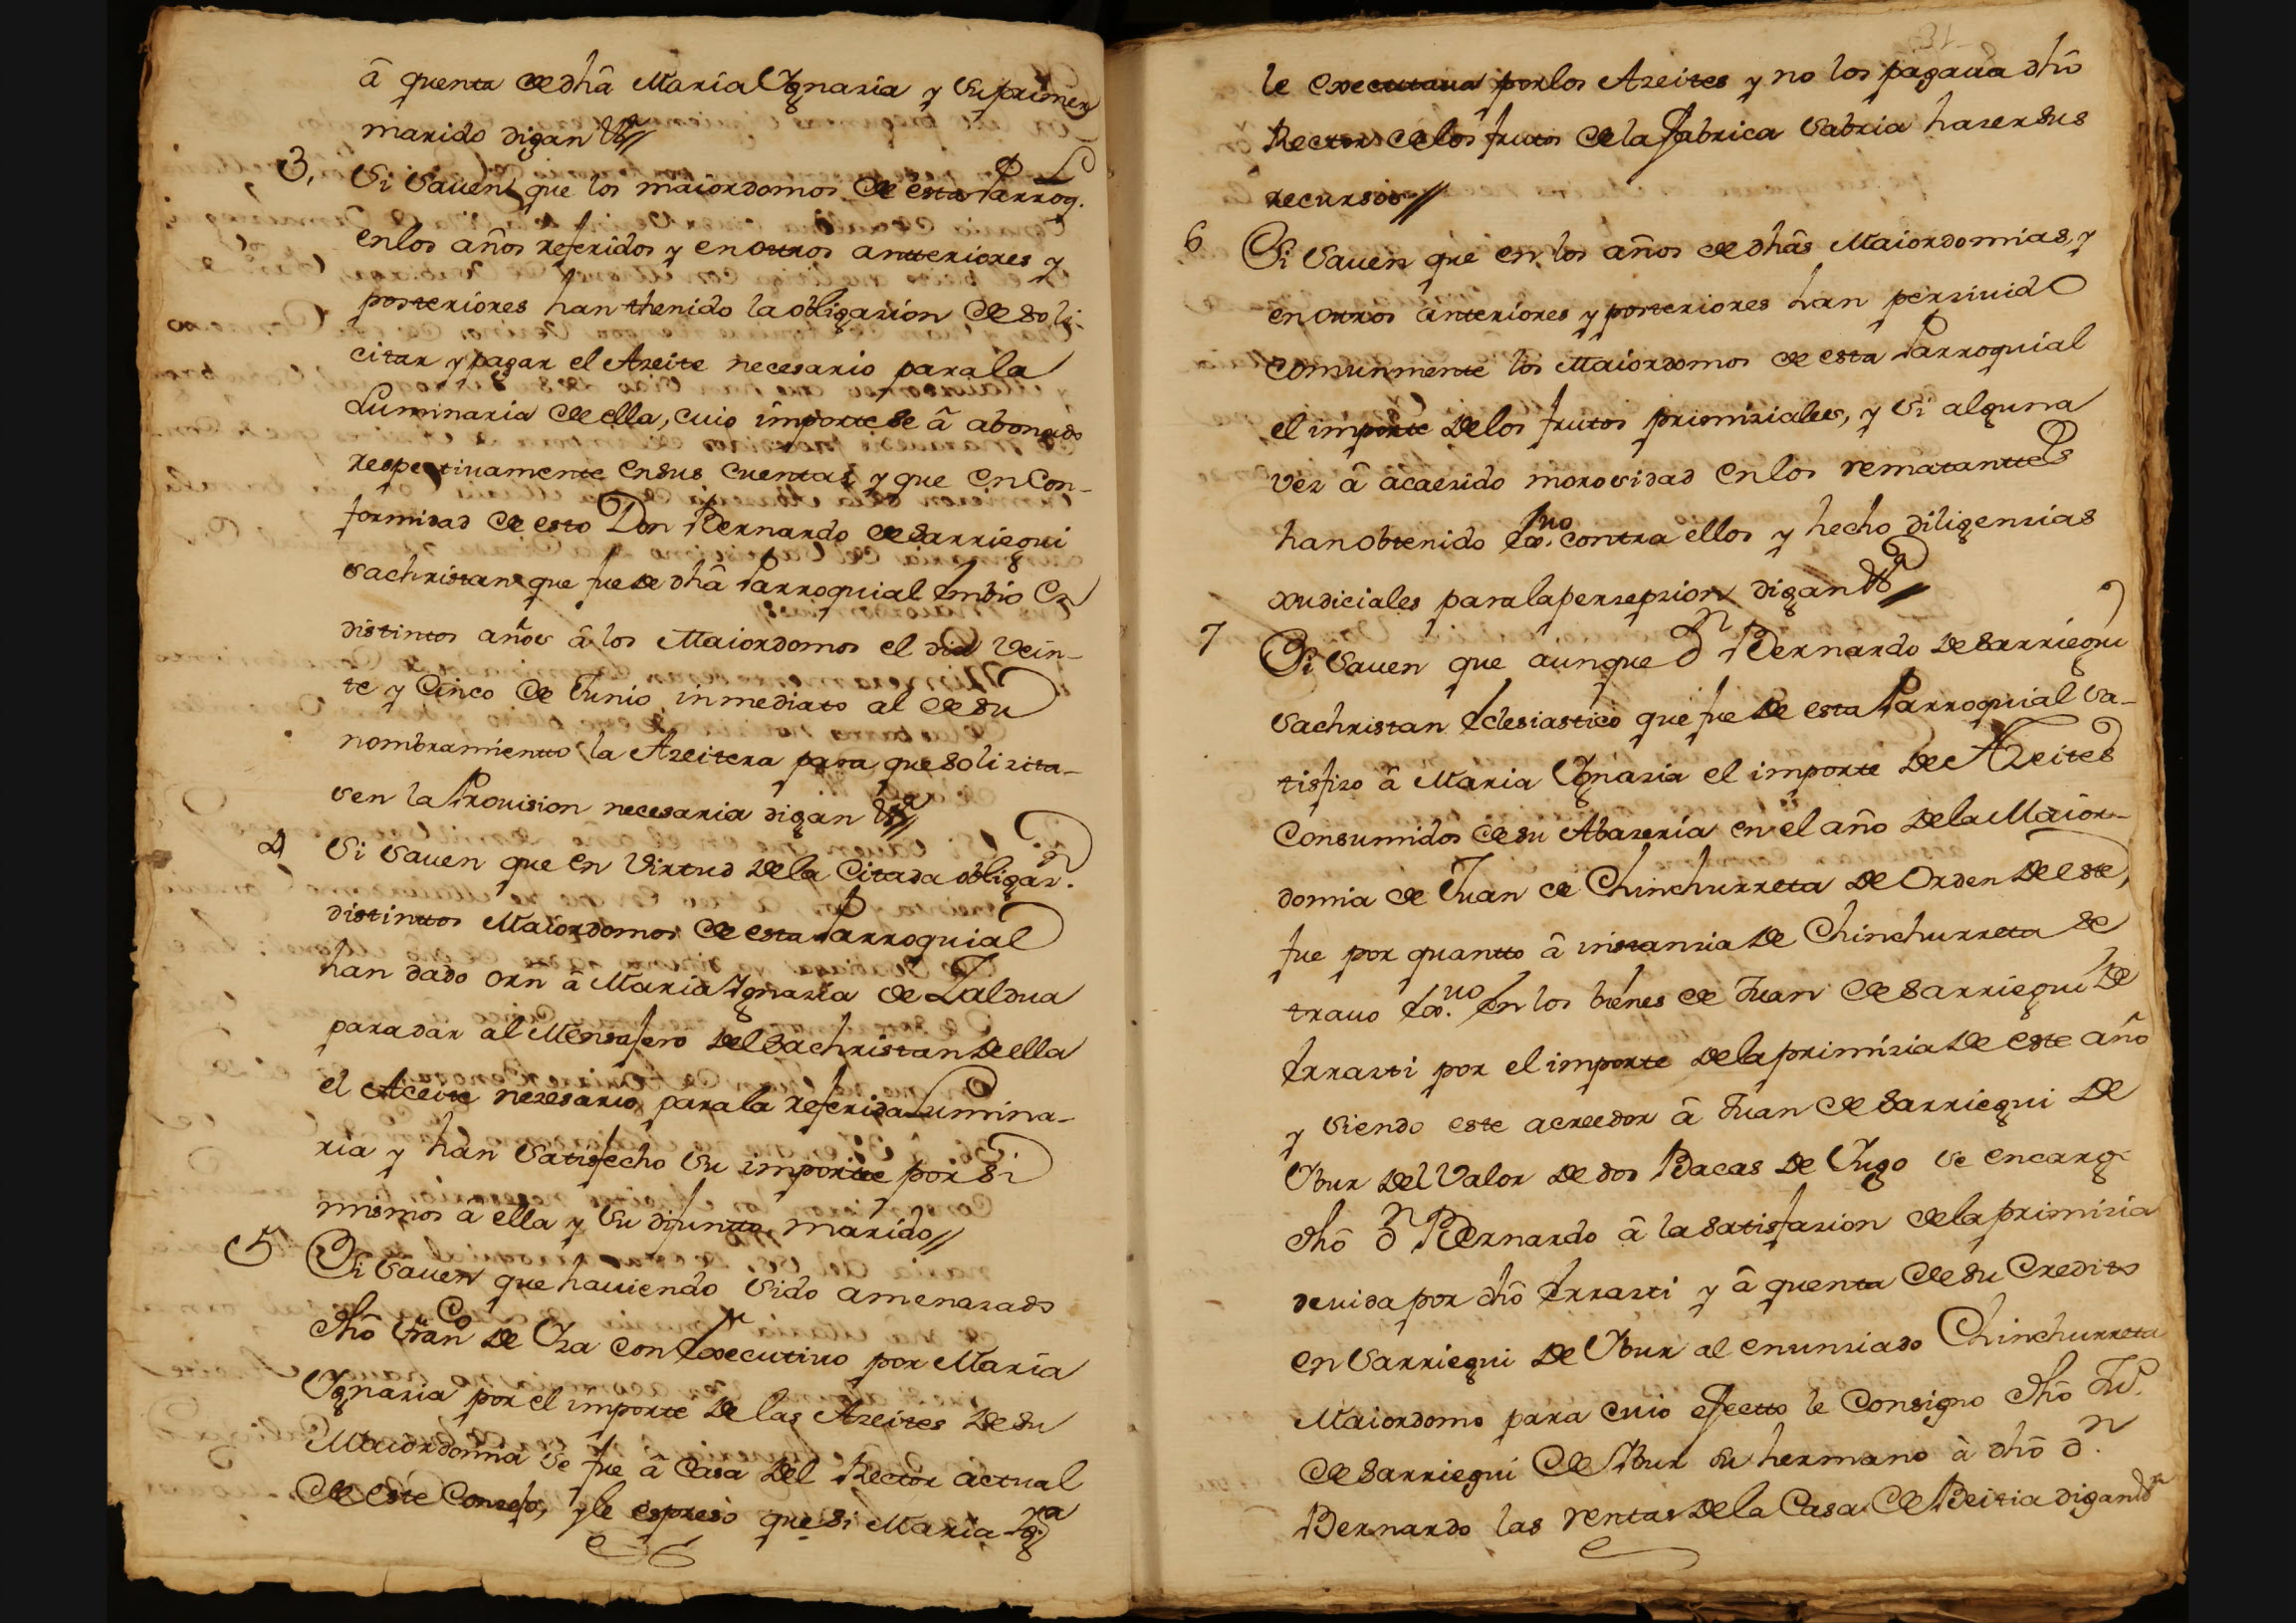 â quenta de dhâ Maria Ygnazia y su primer
marido digan &ª//
3. Si Sauen que los maiordomos de esta Parroq.l
en los años referidos y en outros antteriores y
posteriores han thenido la obligazion de soli-
citar y pagar el Azeite necesario para la
Luminaria de ella, cuio importe se â abonado
respectiuamente en sus Cuentas y que en Con-
formidad de esto Don Bernardo de Sarriegui
Sachristan que fue de dhâ Parroquial Embio en
distintos años â los Maiordomos el dia Vein-
te y Cinco de Junio, inmediato al de su
nombramientto la Azeitera para que solizita-
sen la Prouision necesaria digan &ª//
4 Si Sauen que en Virtud de la Citada obligaz.n
distinttos Maiordomos de esta Parroquial
han dado orn â Maria Ygnazia de Zaldua
para dar al Mensajero del Sachristan de ella
el Aceite nezesario para la referida Lumina-
ria y han Satisfecho su importte por si
mismos â ella y su difuntto marido//
5 Si Sauen que hauiendo Sido amenazado
dhô Fran.co de Yza con Executiuo por Maria
Ygnazia por el importe de las Azeites de su
Maiordomia se fue â Casa del Rector actual
de este Consejo, y le espresò que si Maria Yg.ª
le executaua por los Azeites y no los pagaua dhô
Rector de los frutos de la fabrica Sabria hazer sus
recursos//
6 Si Sauen que en los años de dhâs Maiordomias, y
en otros anteriores y posteriores han perziuido
comunmente los Maiordomos de esta Parroquial
el importe de los frutos primiziales, y si alguna
vez â acaezido morosidad en los rematanttes
han obtenido Ex.uo contra ellos y hecho diligenzias
xudiciales para la perzepzion digan &ª//
7 Si Sauen que aunque D.n Bernardo de Sarriegui
Sachristan Eclesiastico que fue de esta Parroquial Sa-
tisfizo â Maria Ygnazia el importe de Azeites
Consumidos de su Abazeria en el año de la Maior-
domia de Juan de Chinchurreta de Orden de este,
fue por quantto â instanzia de Chinchurreta se
trauo Ex.uo En los bienes de Juan de Sarriegui de
Errazti por el importe de la primizia de este año
y Siendo este acreedor â Juan de Sarriegui de
Ybur del Valor de dos Bacas de Yugo se encargò
dhô D.n Bernardo â la satisfazion de la primizia
deuida por dhô Errazti y â quenta de su Credito
en Sarriegui de Ybur al enunziado Chinchurreta
Maiordomo para cuio efectto le Consigno dhô Ju.n
de Sarriegui de Ybur su hermano à dhô D.n
Bernardo las rentas de la Casa de Beitia digan &ª